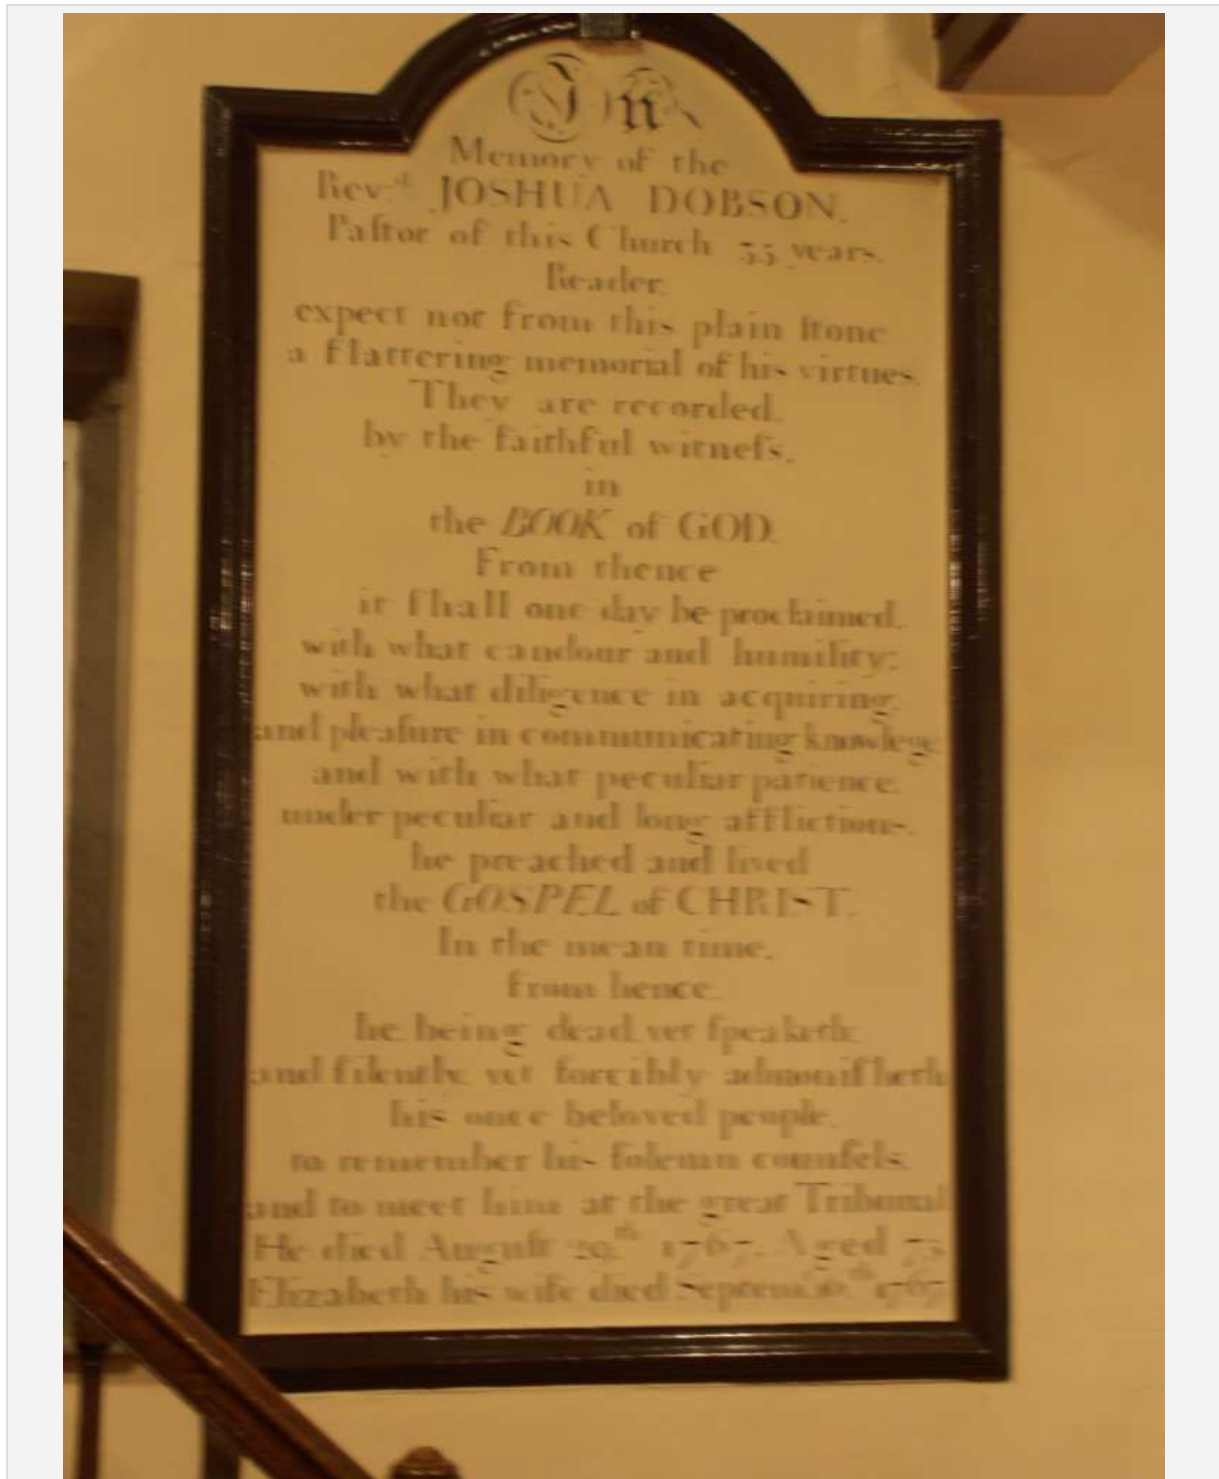 In
Memory of the
Rev.d JOSHUA DOBSON.
Paſtor of this Church 55 years.
Reader,
expect not from this plain ſtone
a flattering memorial of his virtues.
They are recorded,
by the faithful witneſs,
in
the BOOK of GOD.
From thence
it ſhall one day be proclaimed,
with what candour and humility;
with what diligence in acquiring,
and pleaſure in communicating knowlege
and with what peculiar patience,
under peculiar and long afflictions,
he preached and lived
the GOSPEL of CHRIST.
In the mean time,
from hence,
he being dead yet ſpeaketh;
and ſilently, yet forcibly admoniſheth
his once beloved people,
to remember his ſolemn counſels,
and to meet him at the great Tribunal
He died Auguſt 29.th 1767. Aged 75
Elizabeth his wife died 1767